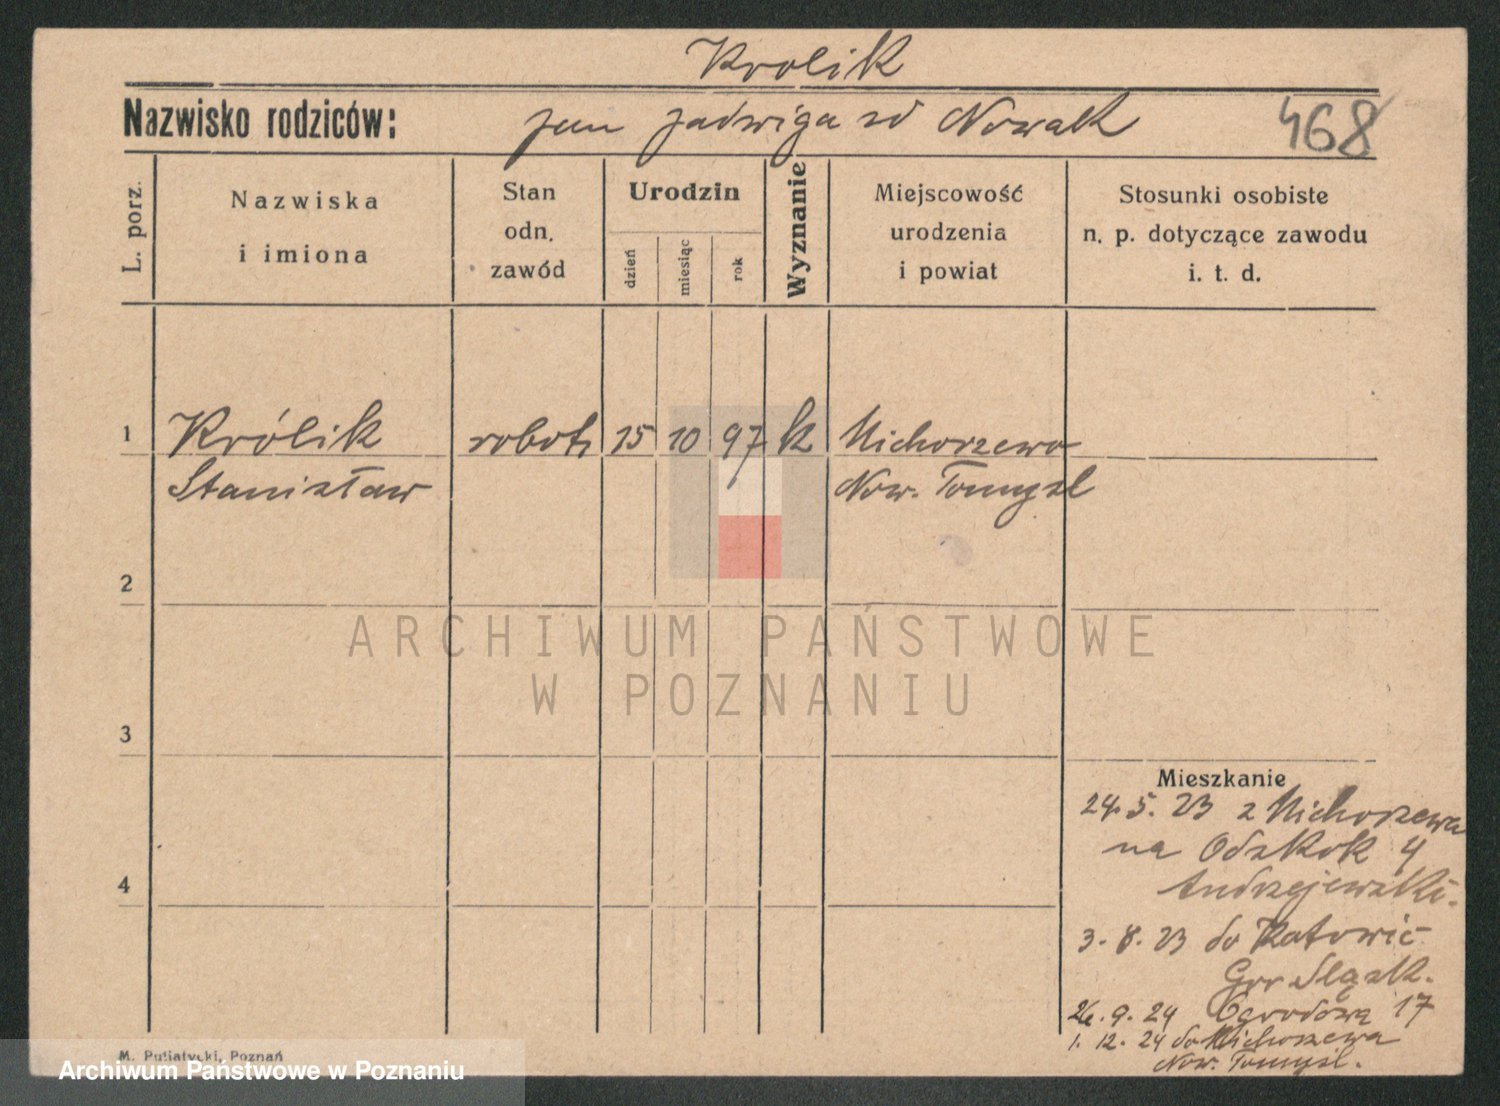 Krolik
Nazwisko rodziców: Jan Jadwiga zd Nowak 468
L. porz.
Nazwiska
i imiona
Stan
odn.
zawód
Urodzin
dzień
miesiąc
rok
Wyznanie
Miejscowość
urodzenia
i powiat
Stosunki osobiste
n. p. dotyczące zawodu
i. t. d.
1 Królik robotn 15 10 97 k Michorzewo
Stanisław Now. Tomyśl
2
3
4
Mieszkanie
24. 5. 23 z Michorzewa
na Odskok 4
Andrzejewski.
3. 8. 23 do Katowic
Gor Sląsk.
26. 9. 24 Ogrodowa 17
1. 12. 24 do Michorzewa
Now. Tomyśl.
M. Putiatycki, Poznań
ARCHIWUM PAŃSTWOWE
W POZNANIU
Archiwum Państwowe w Poznaniu